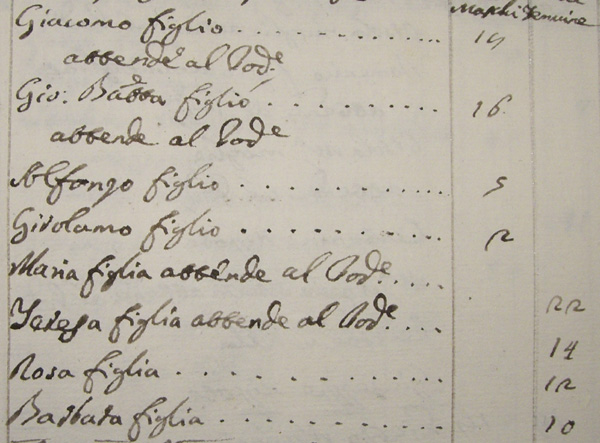 Maschi Femine
Giacomo figlio . . . . . . . . . . . . . . 19
attende al Pod.e
Gio: Batta figlio . . . . . . . . . . . 16
attende al Pod.e
Alfonzo figlio . . . . . . . . . . . . . . 5
Girolamo figlio . . . . . . . . . . . . . 2
Maria figlia attende al Pod.e . . . . 22
Teresa figlia attende al Pod.e . . . . 14
Rosa figlia . . . . . . . . . . . . . . 12
Barbara figlia . . . . . . . . . . . . . 10